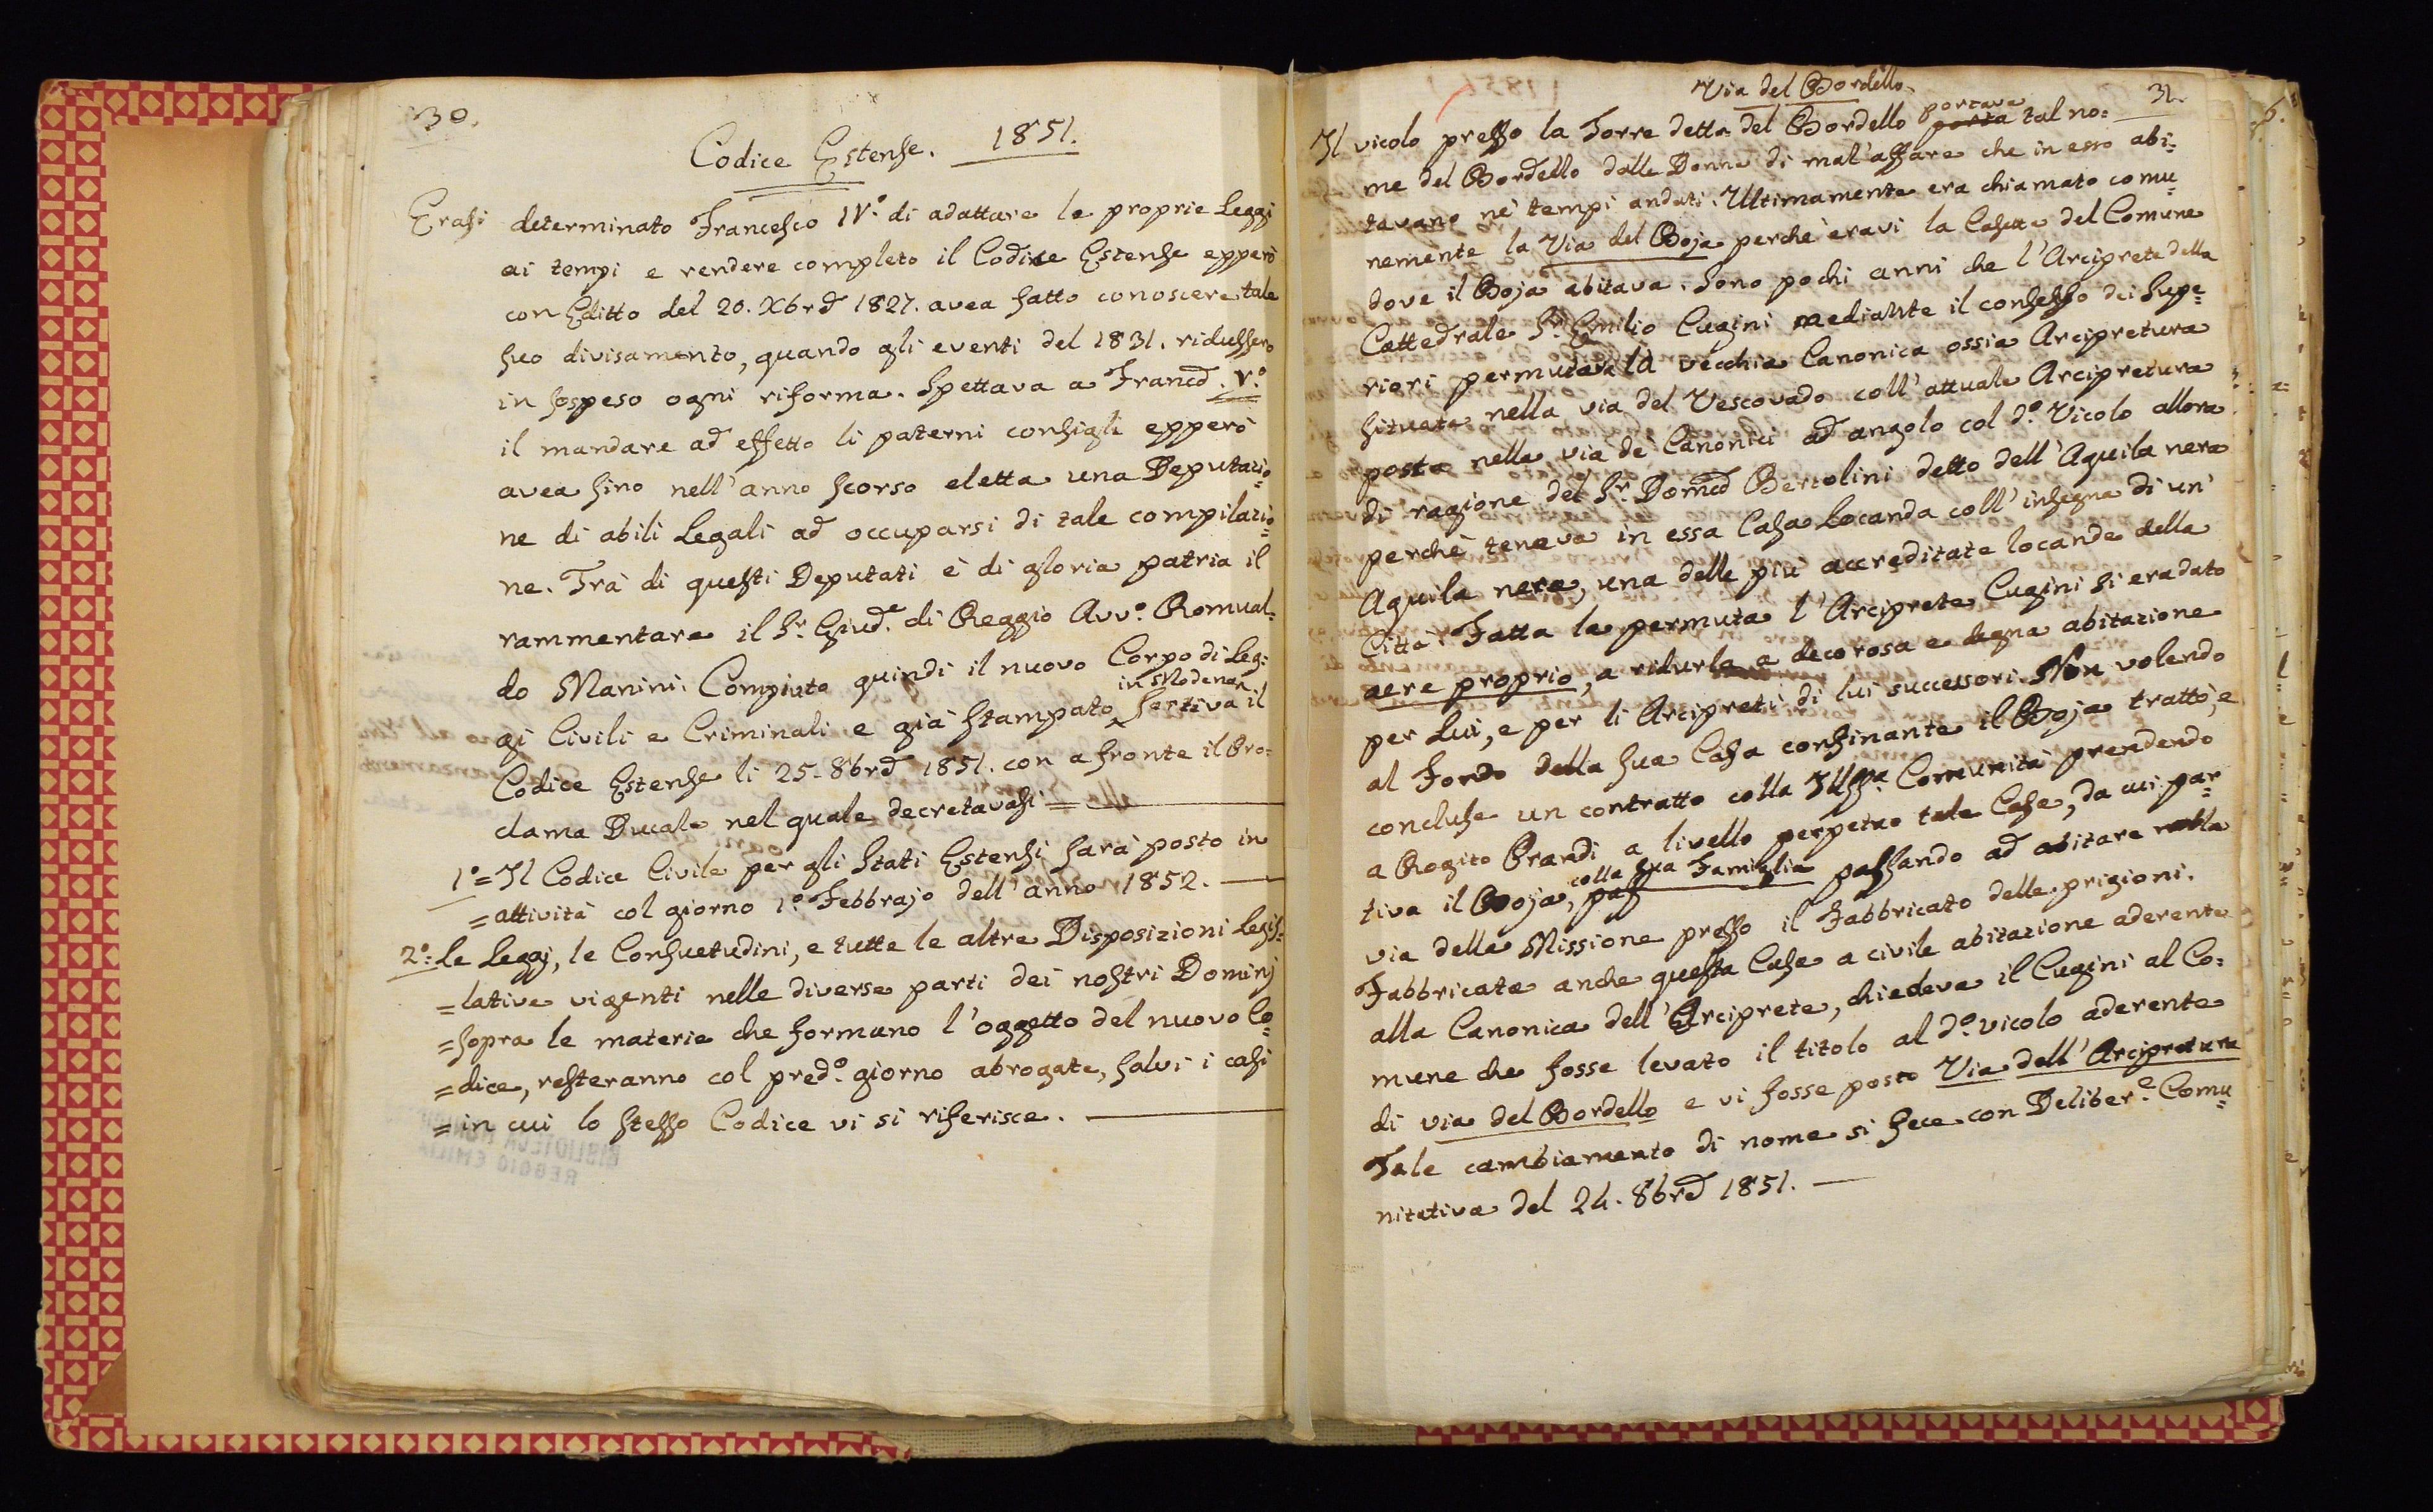 30.
Codice Estense. 1851.
Erasi determinato Francesco IV.° di adattare le proprie Leggi
ai tempi e rendere completo il Codice Estense epperò
con Editto del 20. Xbre 1827. avea fatto conoscere tale
suo divisamento, quando gli eventi del 1831. ridussero
in sospeso ogni riforma. Spettava a Franc.° V.°
il mandare ad effetto li paterni consigli epperò
avea sino nell'anno scorso eletta una Deputazio=
ne di abili Legali ad occuparsi di tale compilazio=
ne. Trà di questi Deputati è di gloria patria il
rammentare il Sr. Giud.e di Reggio Avv.° Romual=
do Manini. Compiuto quindi il nuovo Corpo di Leg=
gi Civili e Criminali e già stampato in Modena sortiva il
Codice Estense li 25. 8bre 1851. con a fronte il Pro=
clama Ducale nel quale decretavasi =
1° = Il Codice Civile per gli Stati Estensi sarà posto in
= attività col giorno 1.° Febbrajo dell'anno 1852.
2.° = Le Leggi, le Consuetudini, e tutte le altre Disposizioni Legis=
= lative vigenti nelle diverse parti dei nostri Dominj
= sopra le materie che formano l'oggetto del nuovo Co=
= dice, resteranno col pred.° giorno abrogate, salvi i casi
= in cui lo stesso Codice vi si riferisce.
BIBLIOTECA
REGGIO EMILIA
31.
Via del Bordello.
Il vicolo presso la Torre detta del Bordello porta portava tal no=
me del Bordello dalle Donne di mal'affare che in esso abi=
tavano nè tempi andati. Ultimamente era chiamato comu=
nemente la Via del Boja perchè eravi la Casetta del Comune
dove il Boja abitava. Sono pochi anni che l'Arciprete della
Cattedrale Sr. Emilio Cugini mediante il consesso dei Supe=
riori permutava la vecchia Canonica ossia Arcipretura
situata nella via del Vescovado coll'attuale Arcipretura
posta nella via dè Canonici ad angolo col d.° Vicolo allora
di ragione del Sr. Dom.co Bertolini detto dell'Aquila nera
perchè teneva in essa Casa Locanda coll'insegna di un'
Aquila nera, una delle più accreditate locande della
Città. Fatta la permuta l'Arciprete Cugini si era dato
aere proprio, a ridurla a decorosa e degna abitazione
per Lui, e per li Arcipreti di lui successori. Non volendo
al Fondo della sua Casa confinante il Boja trattò, e
concluse un contratto colla Illma. Comunità prendendo
a Rogito Prandi a livello perpetuo tale Casa, da cui par=
tiva il Boja, pas colla sua Famiglia passando ad abitare nella
via della Missione presso il Fabbricato delle prigioni.
Fabbricata anche questa Casa a civile abitazione aderente
alla Canonica dell'Arciprete, chiedeva il Cugini al Co=
mune che fosse levato il titolo al d.° vicolo aderente
di via del Bordello e vi fosse posto Via dell'Arcipretura
Tale cambiamento di nome si fece con Deliber.e Comu=
nitativa del 24. 8bre 1851.